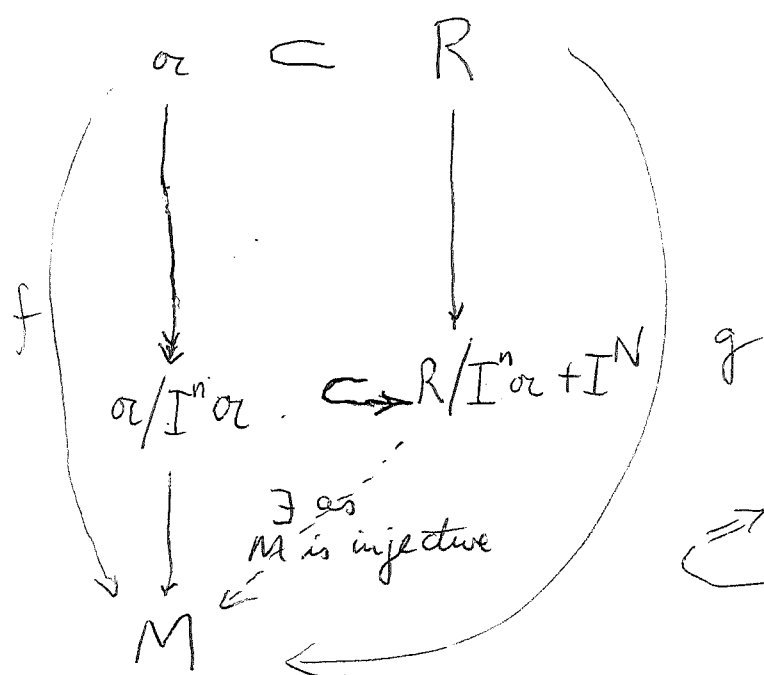 𝔞 ⊂ R
f
𝔞/Iⁿ𝔞 ↪ R/Iⁿ𝔞 + Iᴺ g
∃ as
M is injective
M